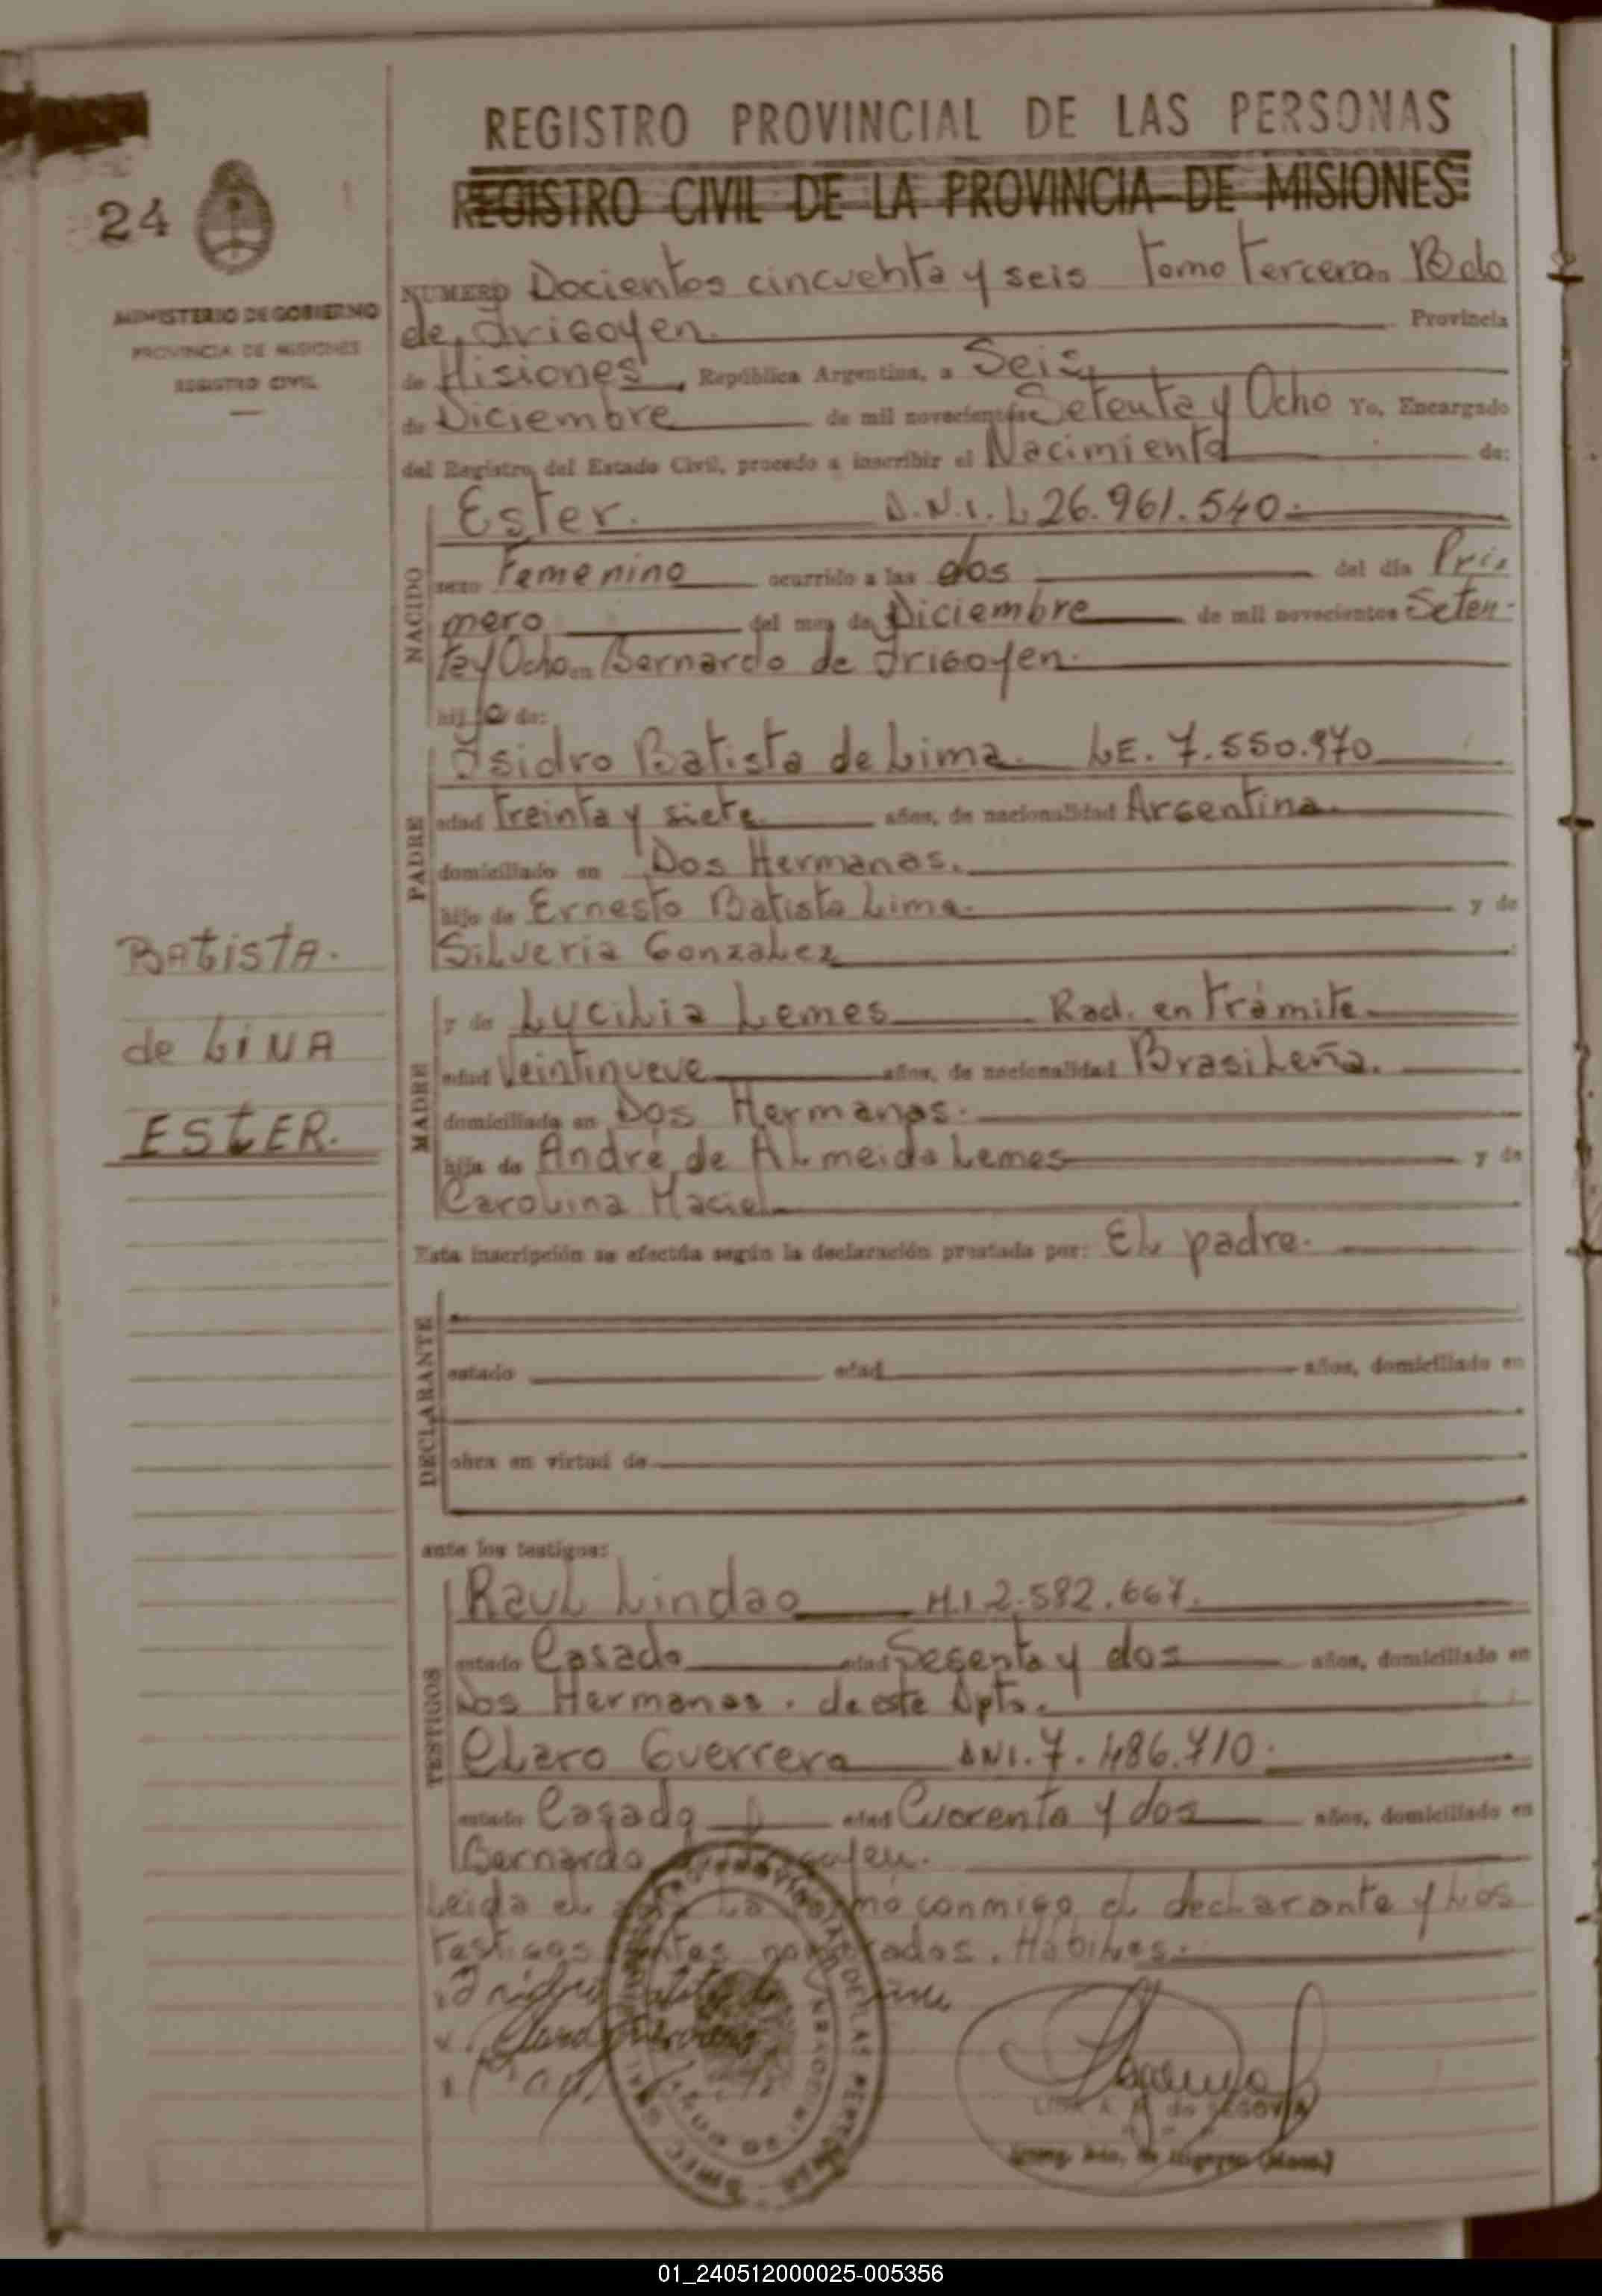 REGISTRO PROVINCIAL DE LAS PERSONAS
REGISTRO CIVIL DE LA PROVINCIA DE MISIONES
24
MINISTERIO DE GOBIERNO
PROVINCIA DE MISIONES
REGISTRO CIVIL
NUMERO Docientos cincuenta y seis Tomo Tercero. en Bdo
de Irigoyen. Provincia
de Misiones, República Argentina, a Seis,
de Diciembre de mil novecientos Setenta y Ocho Yo, Encargado
del Registro del Estado Civil, procedo a inscribir el Nacimiento de:
NACIDO
Ester. D.N.I. L 26.961.540.
sexo Femenino ocurrido a las dos del día Pri-
mero del mes de Diciembre de mil novecientos Seten-
ta y Ocho en Bernardo de Irigoyen.
hija de:
PADRE
Isidro Batista de Lima. LE. 7.550.970
edad Treinta y siete años, de nacionalidad Argentina.
domiciliado en Dos Hermanas.
hijo de Ernesto Batista Lima. y de
Silveria Gonzalez
BATISTA.
de LIMA
ESTER.
MADRE
y de Lucilia Lemes Rad. en Trámite
edad Veintinueve años, de nacionalidad Brasileña.
domiciliada en Dos Hermanas.
hija de André de Almeida Lemes y de
Carolina Maciel
Esta inscripción se efectúa según la declaración prestada por: El padre.
DECLARANTE
estado edad años, domiciliado en
obra en virtud de
ante los testigos:
TESTIGOS
Raul Lindao M.I. 2.582.667.
estado Casado edad Sesenta y dos años, domiciliado en
Dos Hermanas. de este Dpto.
Claro Guerrero DNI. 7.486.710.
estado Casado edad Cuarenta y dos años, domiciliado en
Bernardo
Leida el la conmigo el declarante y Los
testigos antes nombrados. Habiles.
de SEGOVIA
01_240512000025-005356